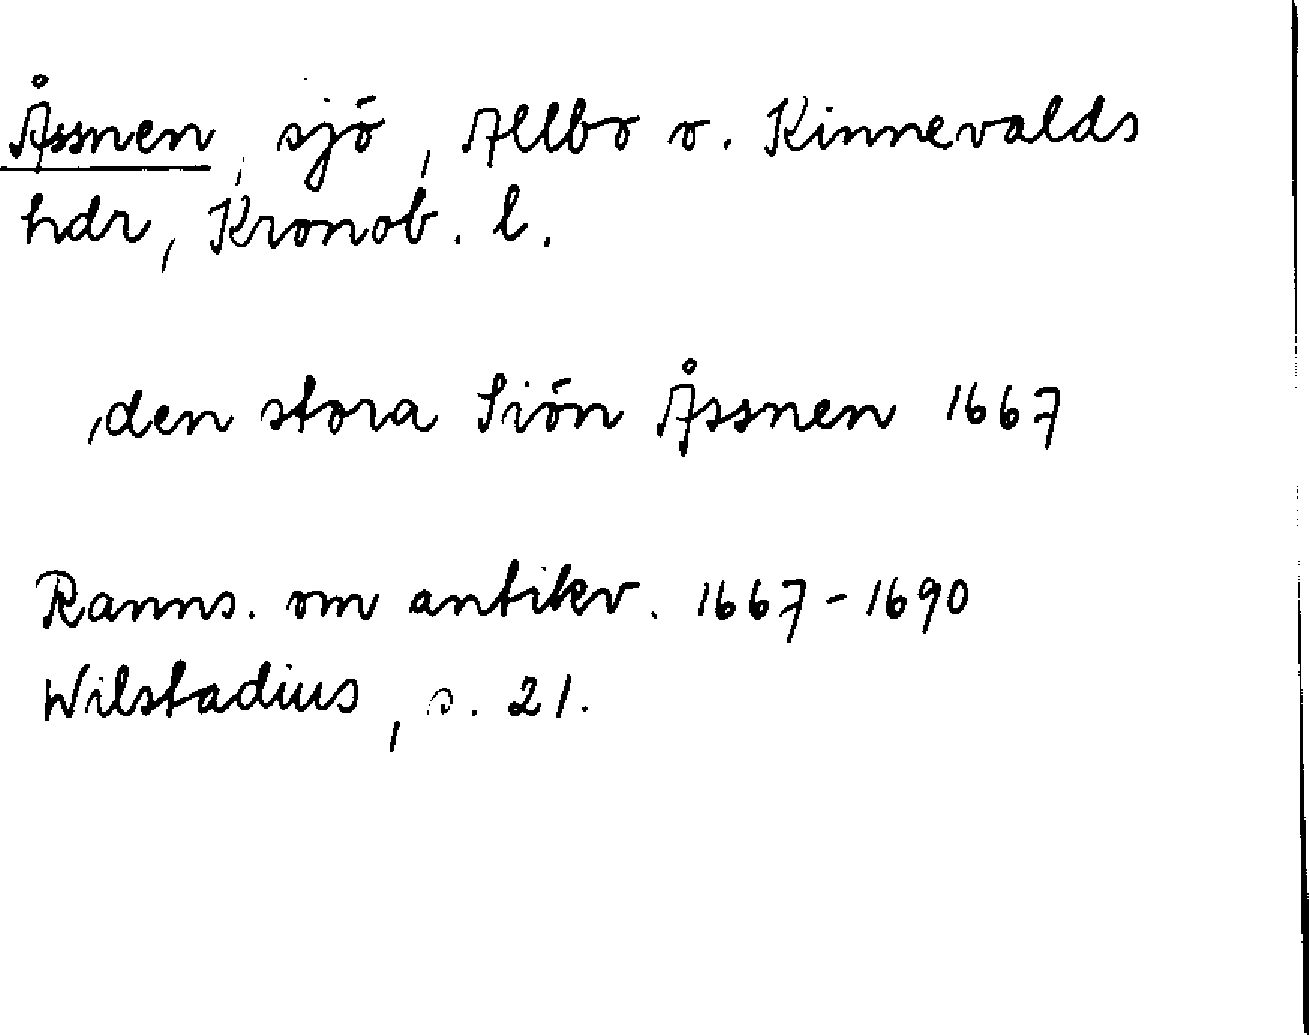 Åssnen, sjö, Allbo o. Kinnevalds
hdr, Kronob. l.
den stora Siön Åssnen 1667
Ranns. om antikv. 1667-1690
Wilstadius, s. 21.